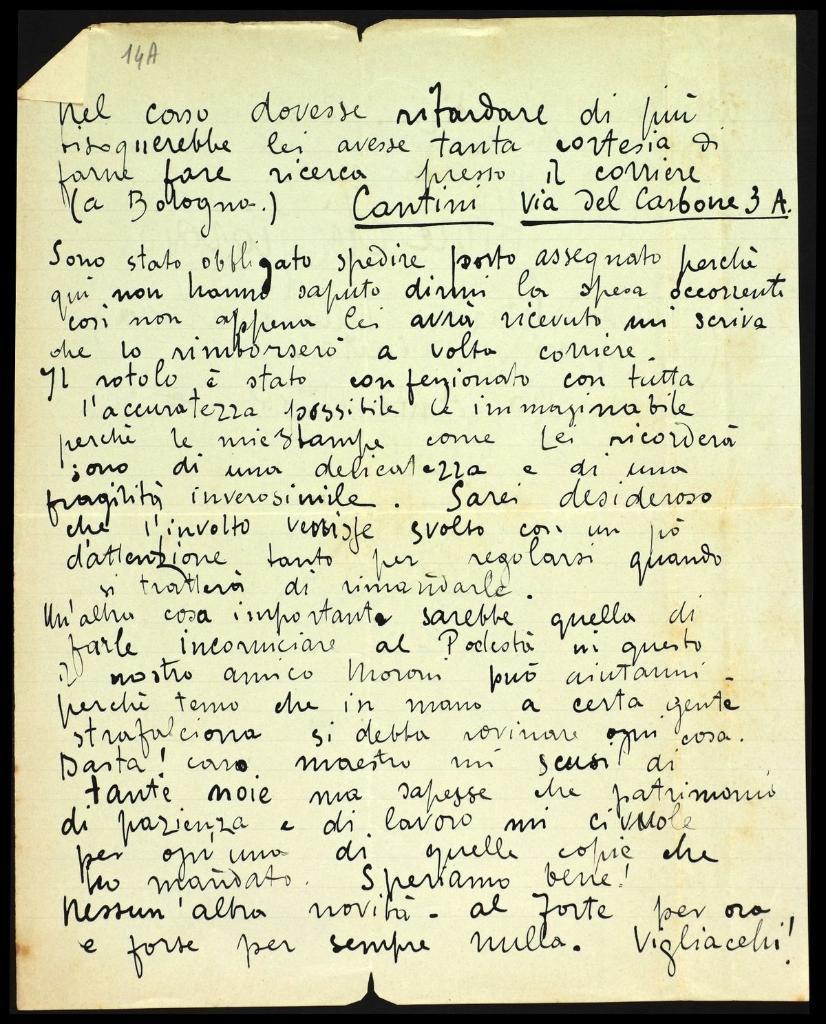 14A
Nel caso dovesse ritardare di più
bisognerebbe lei avesse tanta cortesia di
farne fare ricerca presso il corriere
(a Bologna.) Cantini Via del Carbone 3 A.
Sono stato obbligato spedire porto assegnato perchè
qui non hanno saputo dirmi la spesa occorrente
così non appena lei avrà ricevuto mi scriva
che lo rimborserò a volta corriere.
Il rotolo è stato confezionato con tutta
l'accuratezza possibile e immaginabile
perchè le mie stampe come Lei ricorderà
sono di una delicatezza e di una
fragilità inverosimile. Sarei desideroso
che l'involto venisse svolto con un pò
d'attenzione tanto per regolarsi quando
si tratterà di rimandarle.
Un'altra cosa importante sarebbe quella di
farle incorniciare al Podestà in questo
il nostro amico Moroni può aiutarmi
perchè temo che in mano a certa gente
strafalciona si debba rovinare ogni cosa.
Basta! caro maestro mi scusi di
tante noie ma sapesse che patrimonio
di pazienza e di lavoro mi ci vuole
per ogn'una di quelle copie che
ho mandato. Speriamo bene!
Nessun'altra novità - al Forte per ora
e forse per sempre nulla. Vigliacchi!